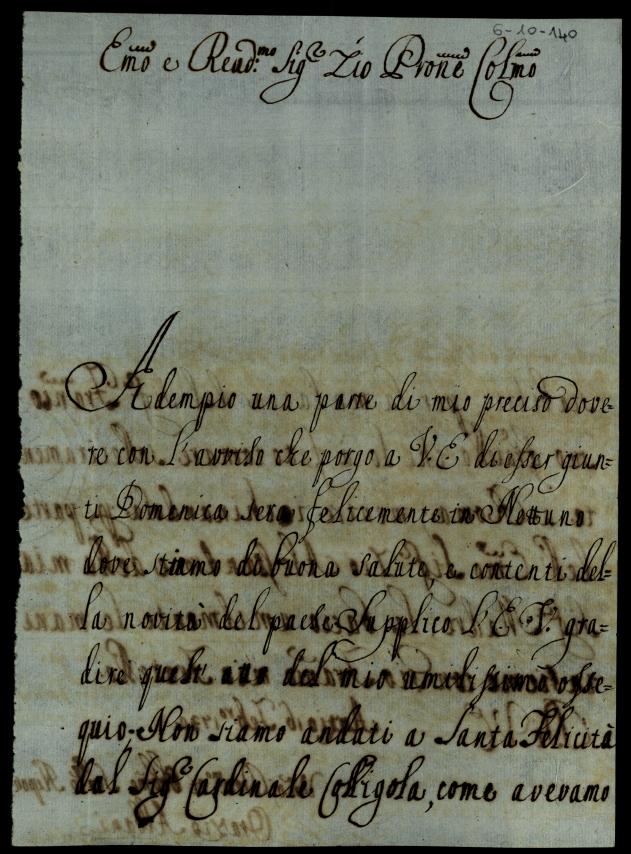 6-10-140
Emo e Revd.mo Sig.e Zio Prone Colmo
Adempio una parte di mio preciso dove=
re con l'avviso che porgo a V. E. di esser giun=
ti Domenica sera felicemente in Nettuno
dove stiamo di buona salute, e contenti del=
la novità del paese. Supplico l'E. V. gra=
dire quest' atto del mio umilissimo osse=
quio. Non siamo andati a Santa Felicità
dal Sig.e Cardinale Colligola, come avevamo